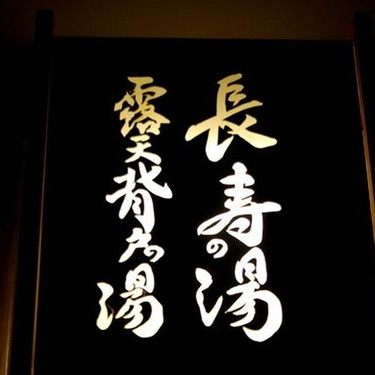 長寿の湯
露天背戸の湯